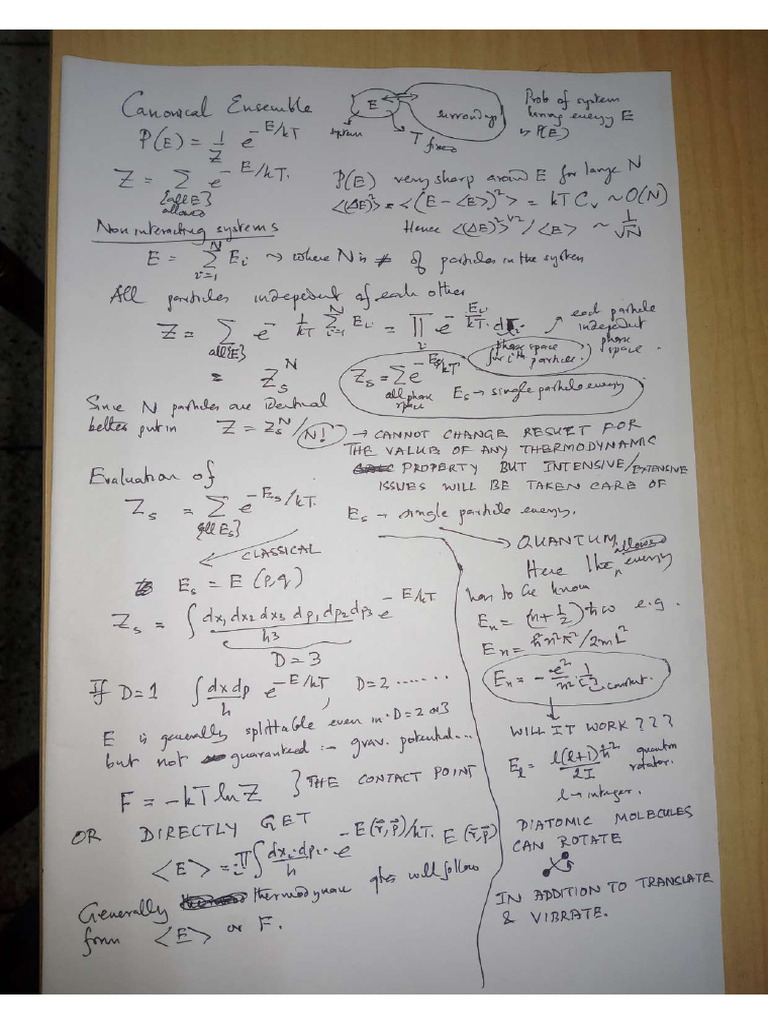 Canonical Ensemble
E
surroundings
system
T fixed
Prob of system
having energy E
is P(E)
P(E) = 1/Z e^{-E/kT}
Z = Σ_{{all E} allowed} e^{-E/kT}.
P(E) very sharp around E for large N
<(ΔE)²> = <(E - <E>)²> = kT C_v ~ O(N)
Non interacting systems
Hence <(ΔE)²>^{1/2}/<E> ~ 1/√N
E = Σ_{i=1}^{N} E_i ~> where N is # of particles in the system
All particles indepedent of each other
Z = Σ_{all{E}} e^{- 1/kT Σ_{i=1}^{N} E_i} = Π_i e^{-E_i/kT}
phase space
for iᵗʰ particle
each particle
indepedent
phase
space.
= Z_s^N
Z_s = Σ_{all phase space} e^{-E_s/kT}
E_s → single particle energy
Since N particles are identical
better put in Z = Z_s^N/N!
→ CANNOT CHANGE RESULT FOR
THE VALUE OF ANY THERMODYNAMIC
PROPERTY BUT INTENSIVE/EXTENSIVE
ISSUES WILL BE TAKEN CARE OF
Evaluation of
Z_s = Σ_{{all E_s}} e^{-E_s/kT}.
E_s → single particle energy.
CLASSICAL
E_s = E(p,q)
Z_s = ∫ dx₁dx₂dx₃ dp₁dp₂dp₃/h3 e^{-E/kT}
D=3
If D=1 ∫ dx dp/h e^{-E/kT}, D=2 ......
E is generally splittable even in D=2 or 3
but not guaranteed :- grav. potential...
F = -kT ln Z } THE CONTACT POINT
OR DIRECTLY GET
<E> = Π_i ∫ dx_i.dp_i../h e^{-E(r⃗,p⃗)/kT}. E(r⃗,p⃗)
Generally thermodynamic will follow
from <E> or F.
QUANTUM
Here the allowed energy
has to be know
E_n = (n+1/2)ħω e.g.
E_n = ħ²n²π²/2mL²
E_n = - e²/n² constant.
WILL IT WORK ???
E_l = l(l+1)ħ²/2I quantum
rotator.
l → integer.
DIATOMIC MOLECULES
CAN ROTATE
IN ADDITION TO TRANSLATE
& VIBRATE.